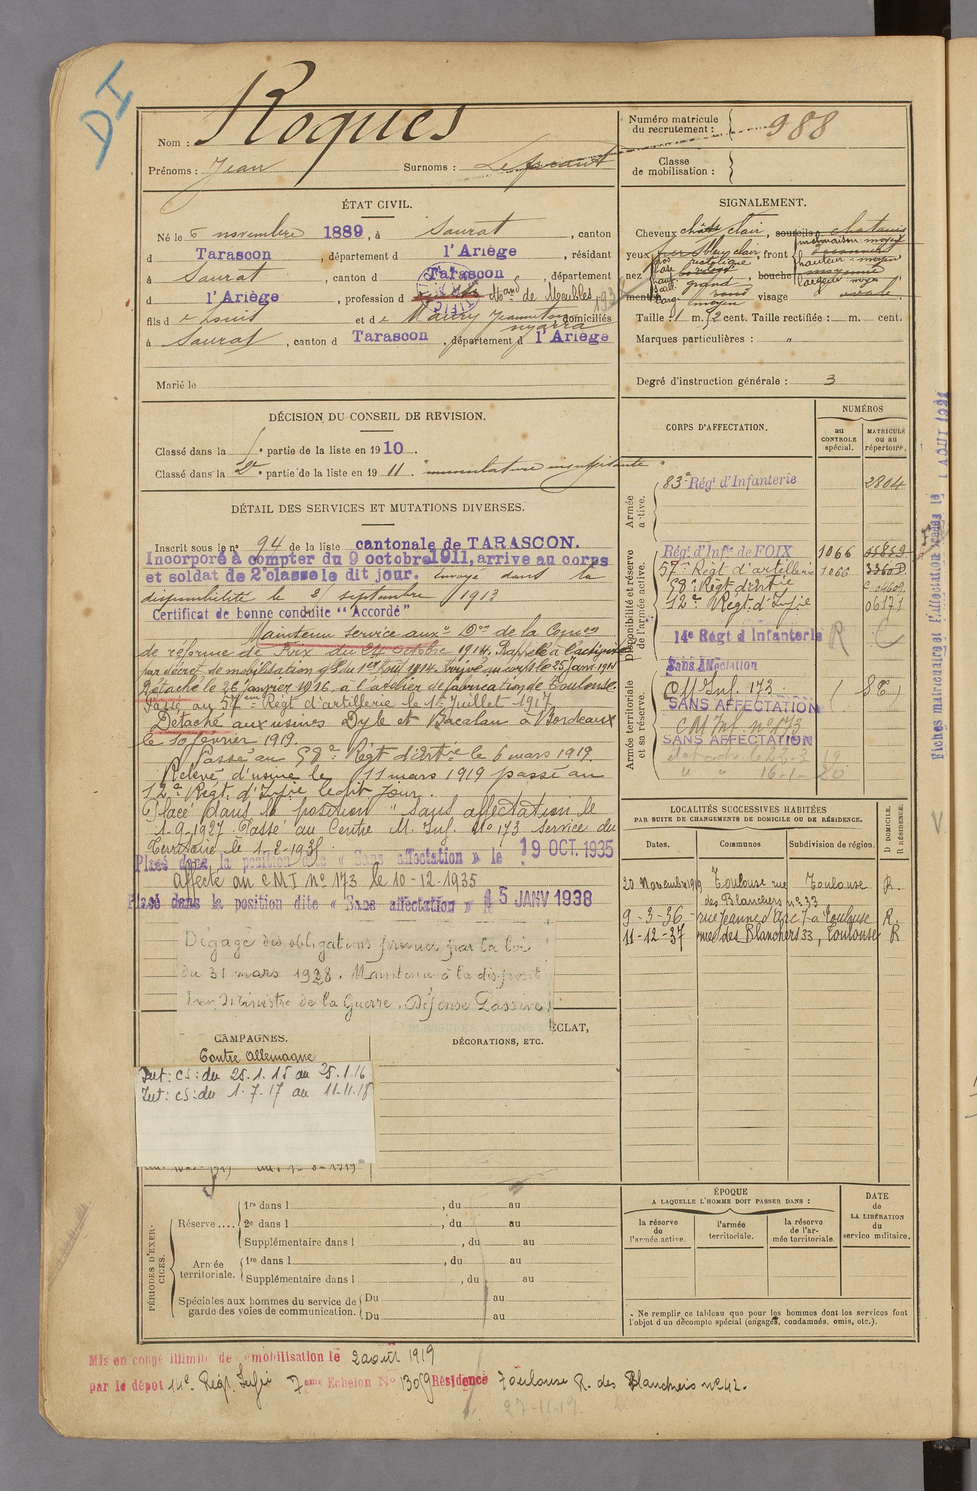 DI
Nom : Roques
Prénoms : Jean Surnoms :
Numéro matricule du recrutement : 988
Classe de mobilisation :
ÉTAT CIVIL.
Né le 6 novembre 1889, à Saurat, canton
d Tarascon, département d l'Ariège, résidant
à Saurat, canton d Tarascon, département
d l'Ariège, profession d Mand de Meubles
fils d e Louis et d e Maury domiciliés
à Saurat, canton d Tarascon, département d l'Ariège
Marié le
SIGNALEMENT.
Cheveux chât clair, sourcils chatains
yeux bleu clair, front
inclinaison moyen
hauteur moyen
largeur moy
nez rectiligne, bouche moyenne
menton rond visage ovale
Taille : 1 m. 72 cent. Taille rectifiée : m. cent.
Marques particulières : "
Degré d'instruction générale : 3
DÉCISION DU CONSEIL DE REVISION.
Classé dans la 1e partie de la liste en 1910.
Classé dans la 2e partie de la liste en 1911. "musculature insuffisante"
DÉTAIL DES SERVICES ET MUTATIONS DIVERSES.
Inscrit sous le n° 94 de la liste cantonale de TARASCON.
Incorporé à compter du 9 octobre 1911, arrive au corps
et soldat de 2e classe le dit jour. Envoyé dans la
disponibilité le septembre 1913
Certificat de bonne conduite "Accordé"
Maintenu service auxre Don de la Comon
de réforme de Foix du 24 octobre 1914. Rappelé à l'activité
par décret de mobilisation gle du 1er Août 1914. Arrivé au corps le 25 Janv.
Détaché le 26 janvier 1916, à l'atelier de fabrication de Toulouse.
Passé au 57eme Régt d'artillerie le 1er Juillet 1917
Détaché aux usines Dyle et Bacalan à Bordeaux
le 10 février 1919.
Passé au 58e Régt d'Artie le 6 mars 1919.
Relevé d'usine le 11 mars 1919 passé au
12e Régt. d'Infie le dit jour.
Placé dans la position "sans affectation" le
1-9-1927. Passé au Centre M. Inf. No 173 service du
Territoire le 1-2-193
Placé dans la position dite « Sans affectation » le 19 OCT. 1935
Affecté au CMI No 173 le 10-12-1935
Placé dans la position dite « Sans affectation » le 15 JANV 1938
Dégagé des obligations prévues par la loi
du 31 mars 1928. Maintenu à la disposit
Ministre de la Guerre. Défense Passive
CORPS D'AFFECTATION.
NUMÉROS
au CONTROLE spécial.
MATRICULE ou au répertoire.
Armée active.
83e Régt d'Infanterie 2804
Disponibilité et réserve de l'armée active.
Régt d'Infie de FOIX 1066
57e Régt d'artillerie 1066
58e Régt d'Artie
12e Régt. d'Infie 06171
14e Régt d'Infanterie R
Sans Affectation
Armée territoriale et sa réserve.
CM Inf. 173
SANS AFFECTATION
CM Inf. no 173
SANS AFFECTATION
LOCALITÉS SUCCESSIVES HABITÉES
PAR SUITE DE CHANGEMENTS DE DOMICILE OU DE RÉSIDENCE.
Dates. Communes Subdivision de région. D DOMICILE. R RÉSIDENCE.
20 Novembre 1919 Toulouse rue des Blanchers no 33 Toulouse R.
9-3-36 rue Jeanne d'Arc 7 à Toulouse R.
11-12-37 rue des Blanchers 33, Toulouse R
CAMPAGNES.
Contre Allemagne
Int : CS : du 25.1.15 au 25.1.16
Int : CS : du 1.7.17 au 11.11.18
ÉCLAT,
DÉCORATIONS, ETC.
PÉRIODES D'EXERCICES.
Réserve....
1re dans l , du au
2e dans l , du au
Supplémentaire dans l , du au
Armée territoriale.
1re dans l , du au
Supplémentaire dans l , du au
Spéciales aux hommes du service de garde des voies de communication.
Du au
Du au
ÉPOQUE
A LAQUELLE L'HOMME DOIT PASSER DANS :
la réserve de l'armée active.
l'armée territoriale.
la réserve de l'armée territoriale.
DATE de LA LIBÉRATION du service militaire.
- Ne remplir ce tableau que pour les hommes dont les services font
l'objet d'un décompte spécial (engagés, condamnés, omis, etc.).
Mis en congé illimité de démobilisation le 2 août 1919
par le dépôt 14e Régt. Infie 7eme Echelon No 1309 Résidence Toulouse R. des Blanchers no 42.
27-11-19